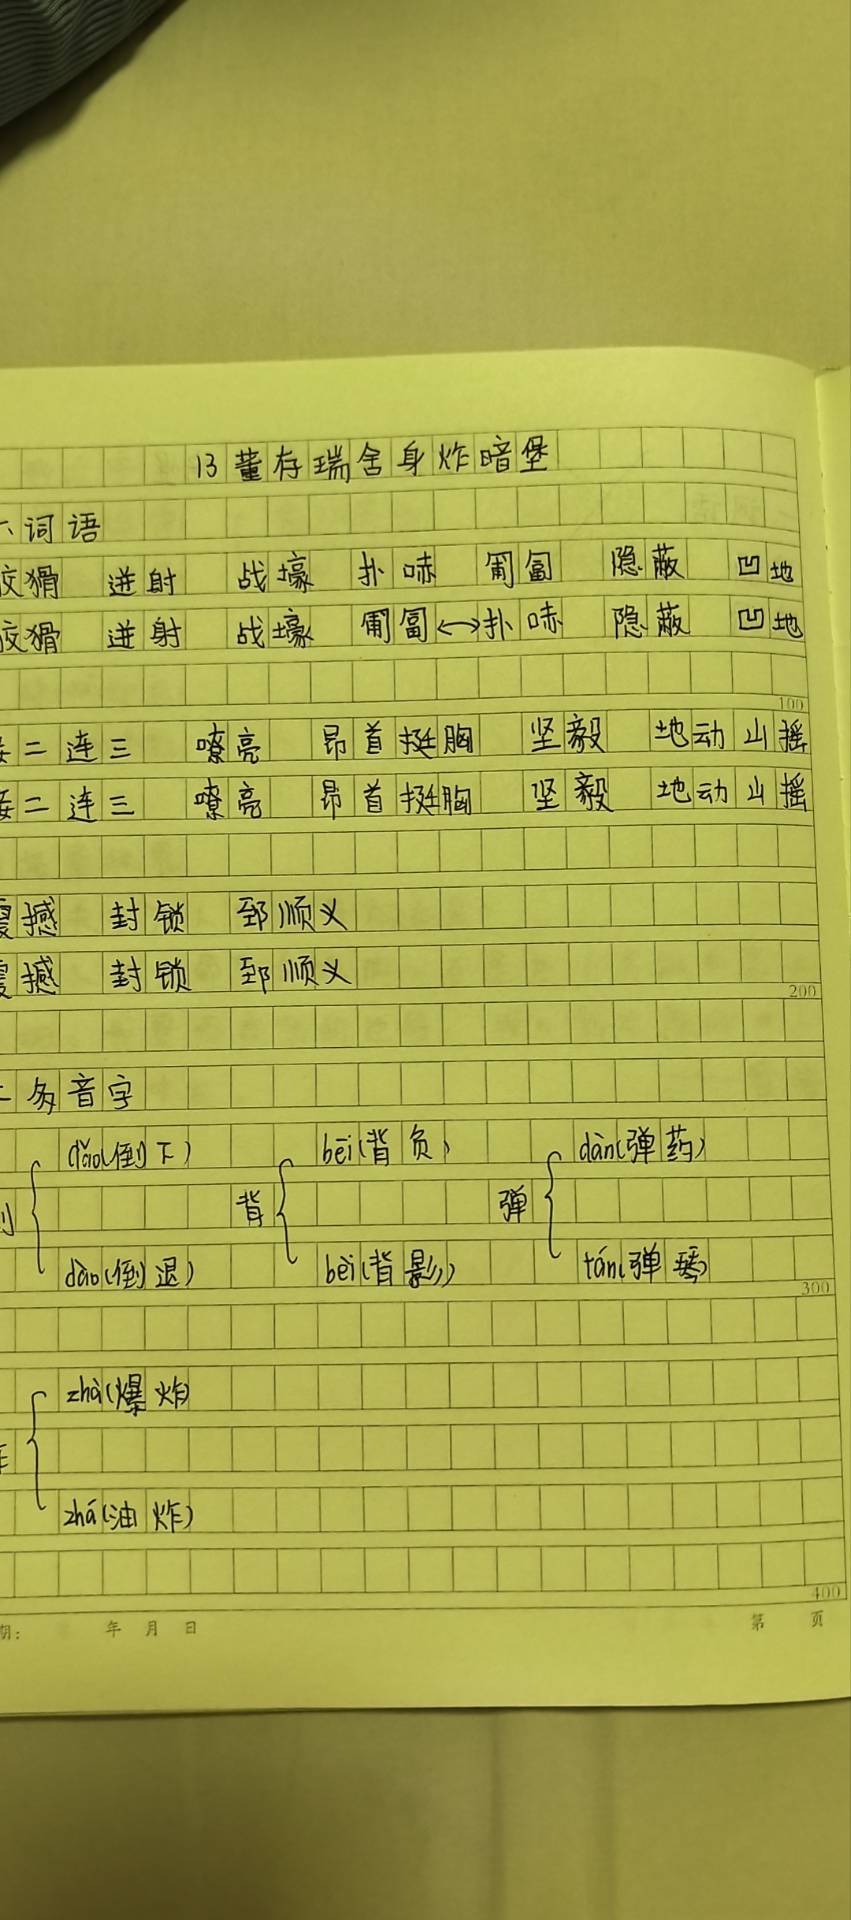 13董存瑞舍身炸暗堡
一、词语
狡猾 迸射 战壕 扑哧 匍匐 隐蔽 凹地
狡猾 迸射 战壕 匍匐↔扑哧 隐蔽 凹地
100
接二连三 嘹亮 昂首挺胸 坚毅 地动山摇
接二连三 嘹亮 昂首挺胸 坚毅 地动山摇
震撼 封锁 郅顺义
震撼 封锁 郅顺义
200
二 多音字
dǎo(倒下) bēi(背负) dàn(弹药)
倒 背 弹
dào(倒退) bèi(背影) tán(弹琴)
300
zhà(爆炸)
炸
zhá(油炸)
400
期: 年 月 日 第 页